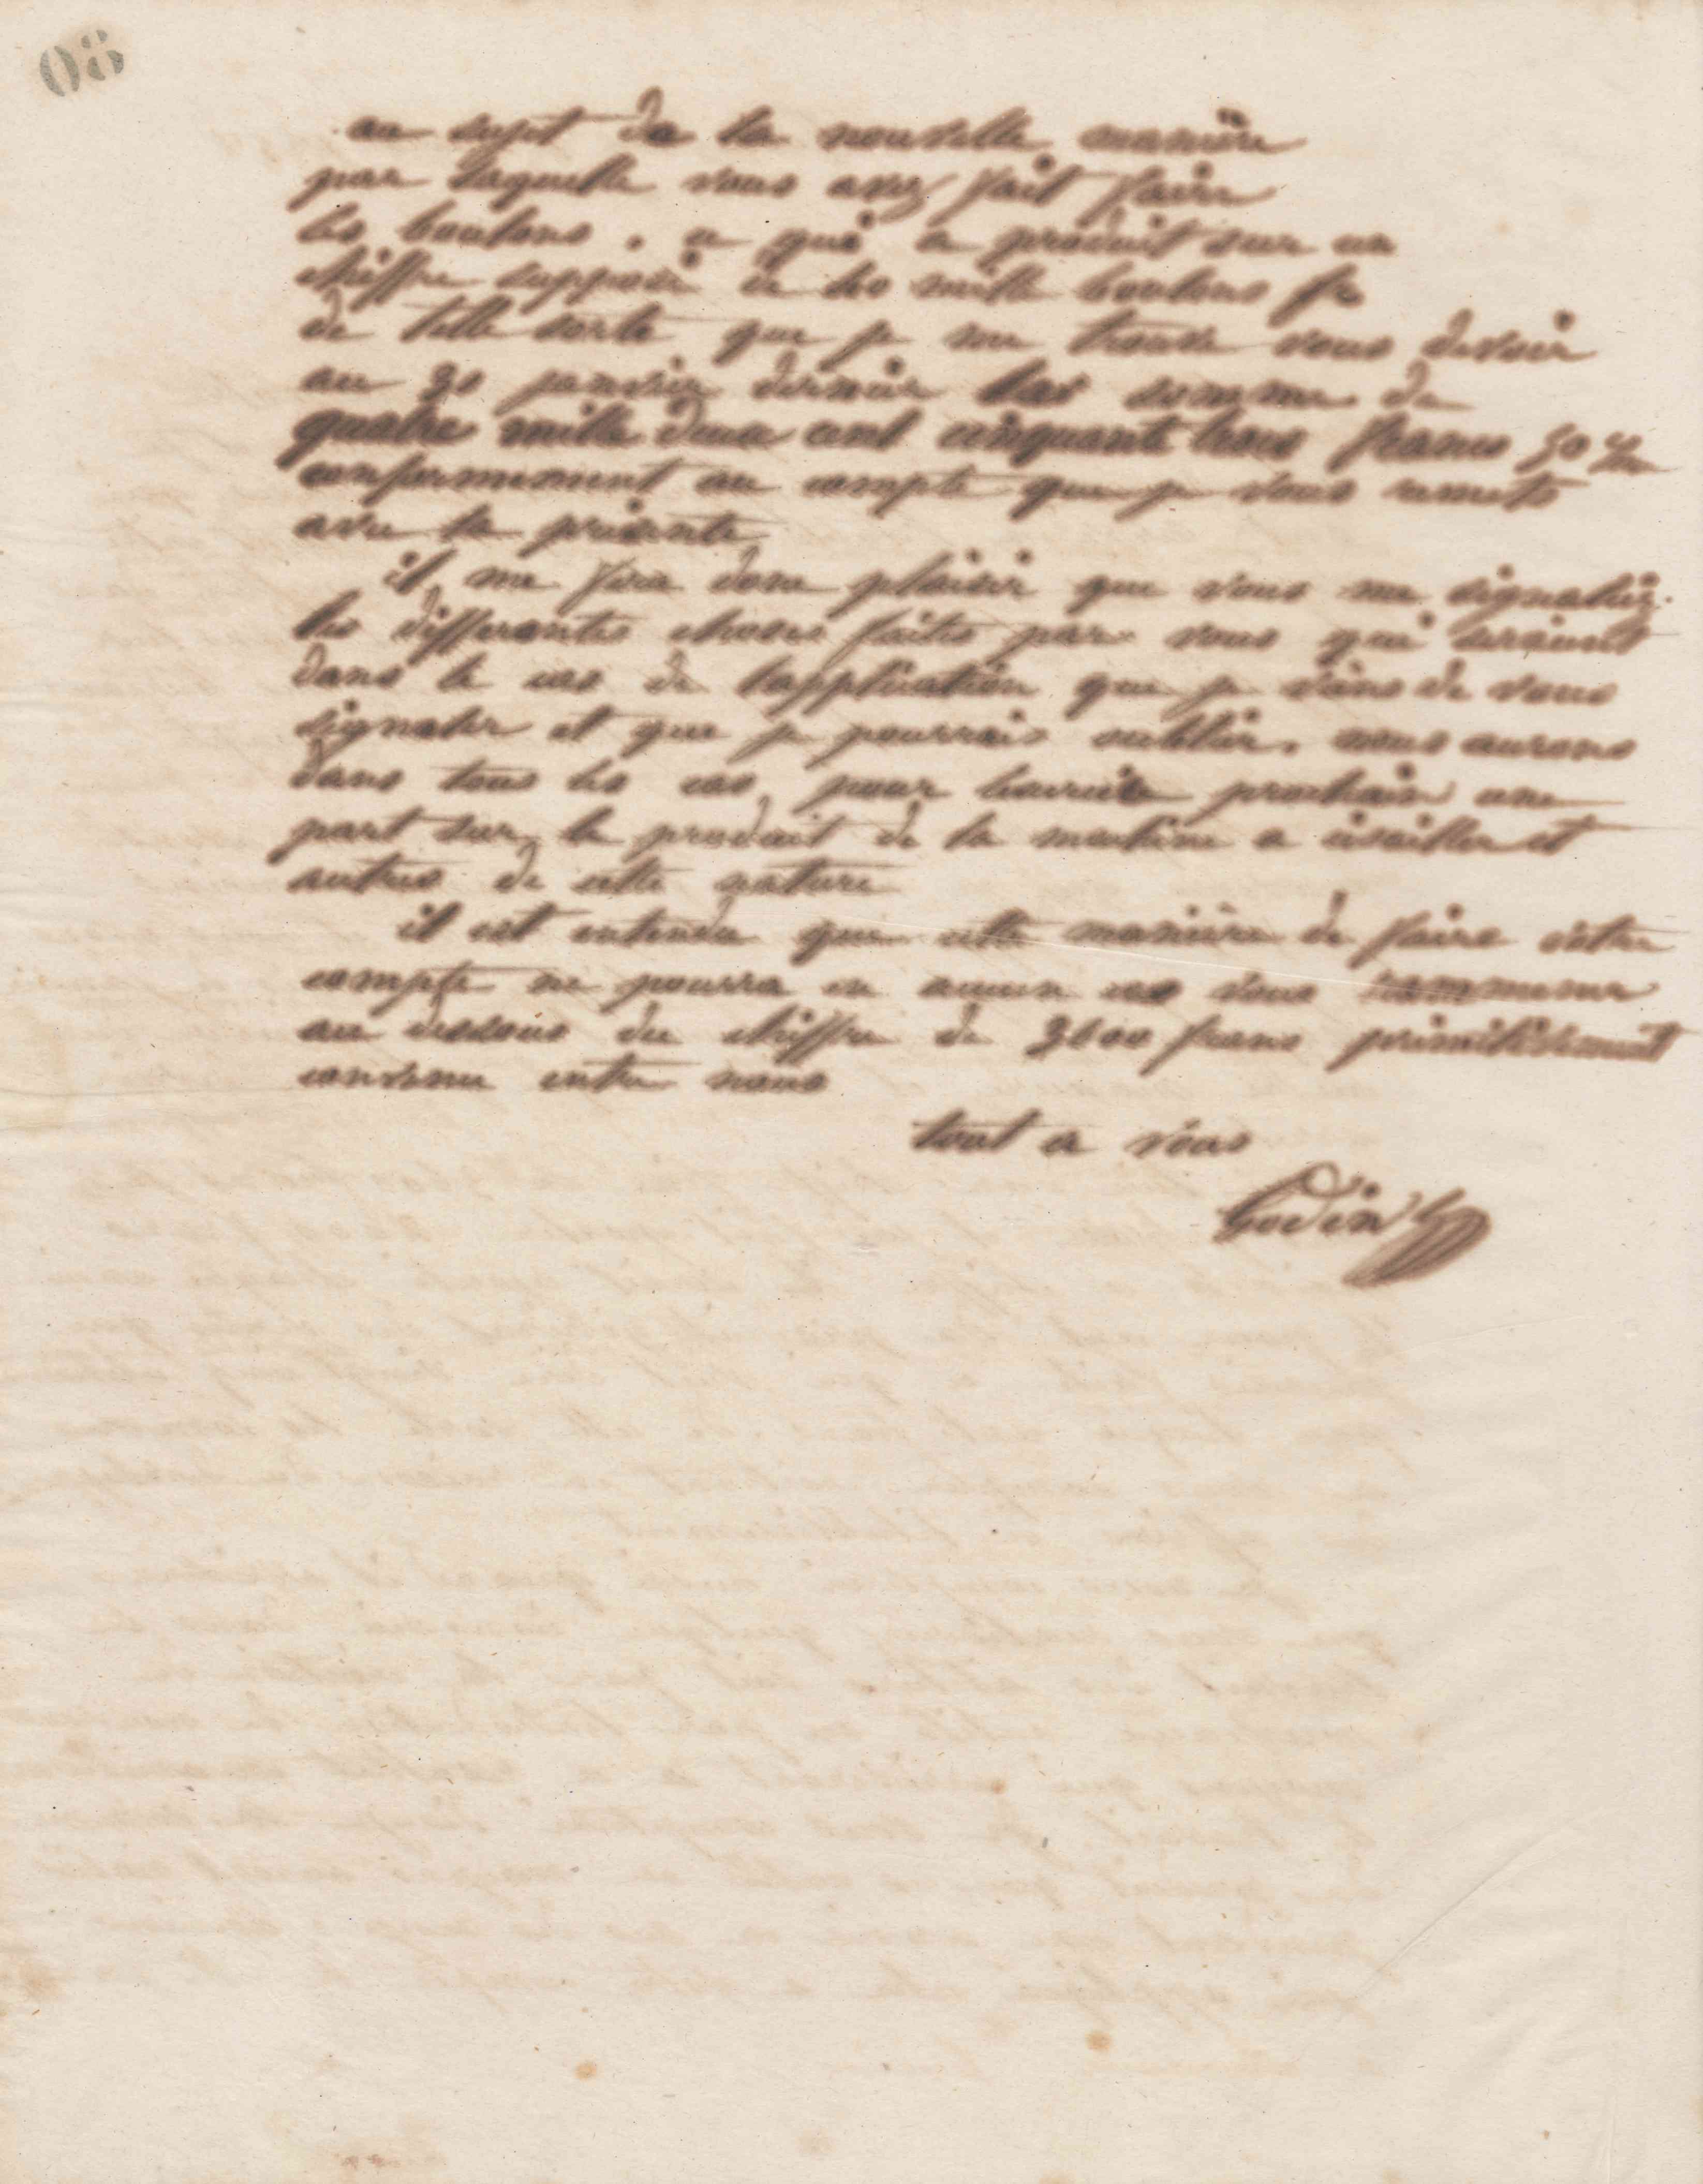 08
au sujet de la nouvelle manière
par laquelle vous avez fait faire
les boulons. ce qui a produit sur un
chiffre supposé de mille boulons
de telle sorte que je me trouve vous devoir
au 30 janvier dernier la somme de
quatre mille deux cent cinquante trois francs 50
conformement au compte que je vous remets
avec la présente
il me fera donc plaisir que vous me signaliez
les differentes choses faites par vous qui seraient
dans le cas de l'application que je viens de vous
signaler et que je pourrais oublier. nous aurons
dans tous les cas pour prochain une
part sur le produit de la machine a cisailler et
autres de cette nature
il est entendu que cette manière de faire votre
compte ne pourra en aucun cas vous
au dessous du chiffre de 3600 francs primitivement
convenu entre nous
tout a vous
Godin